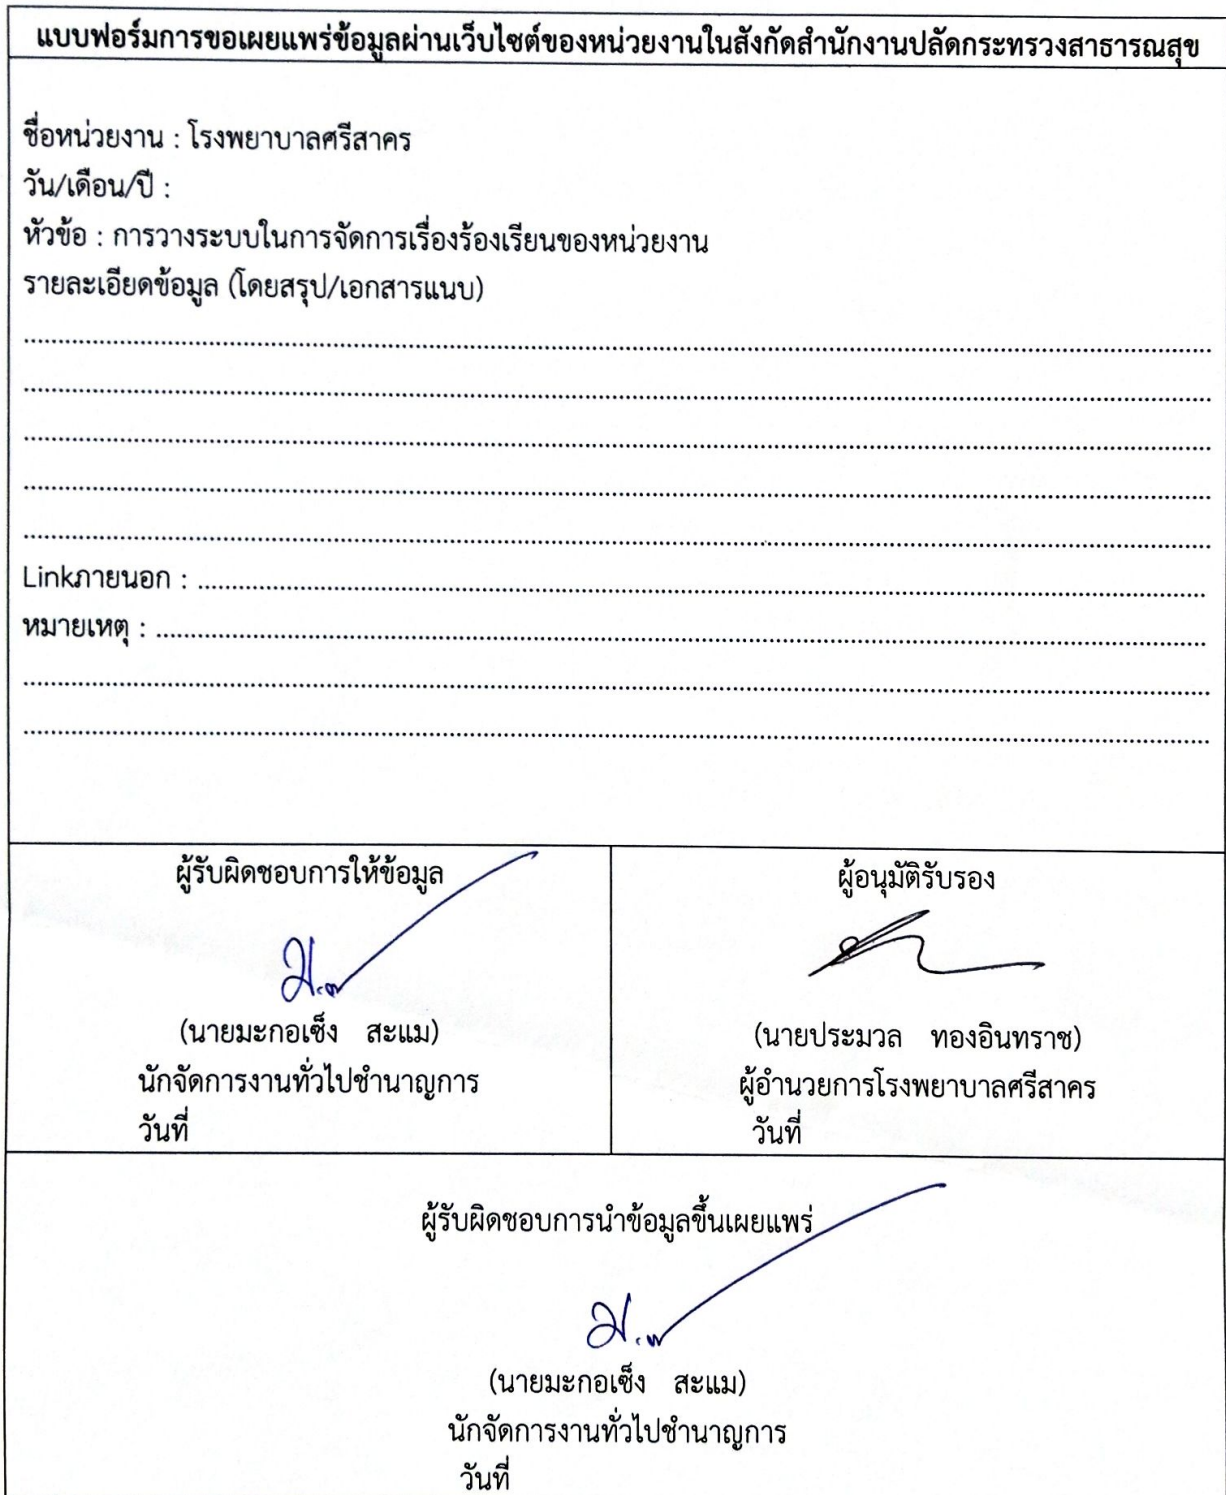 แบบฟอร์มการขอเผยแพร่ข้อมูลผ่านเว็บไซต์ของหน่วยงานในสังกัดสำนักงานปลัดกระทรวงสาธารณสุข
ชื่อหน่วยงาน : โรงพยาบาลศรีสาคร
วัน/เดือน/ปี :
หัวข้อ : การวางระบบในการจัดการเรื่องร้องเรียนของหน่วยงาน
รายละเอียดข้อมูล (โดยสรุป/เอกสารแนบ)
Linkภายนอก :
หมายเหตุ :
ผู้รับผิดชอบการให้ข้อมูล
(นายมะกอเซ็ง สะแม)
นักจัดการงานทั่วไปชำนาญการ
วันที่
ผู้อนุมัติรับรอง
(นายประมวล ทองอินทราช)
ผู้อำนวยการโรงพยาบาลศรีสาคร
วันที่
ผู้รับผิดชอบการนำข้อมูลขึ้นเผยแพร่
(นายมะกอเซ็ง สะแม)
นักจัดการงานทั่วไปชำนาญการ
วันที่